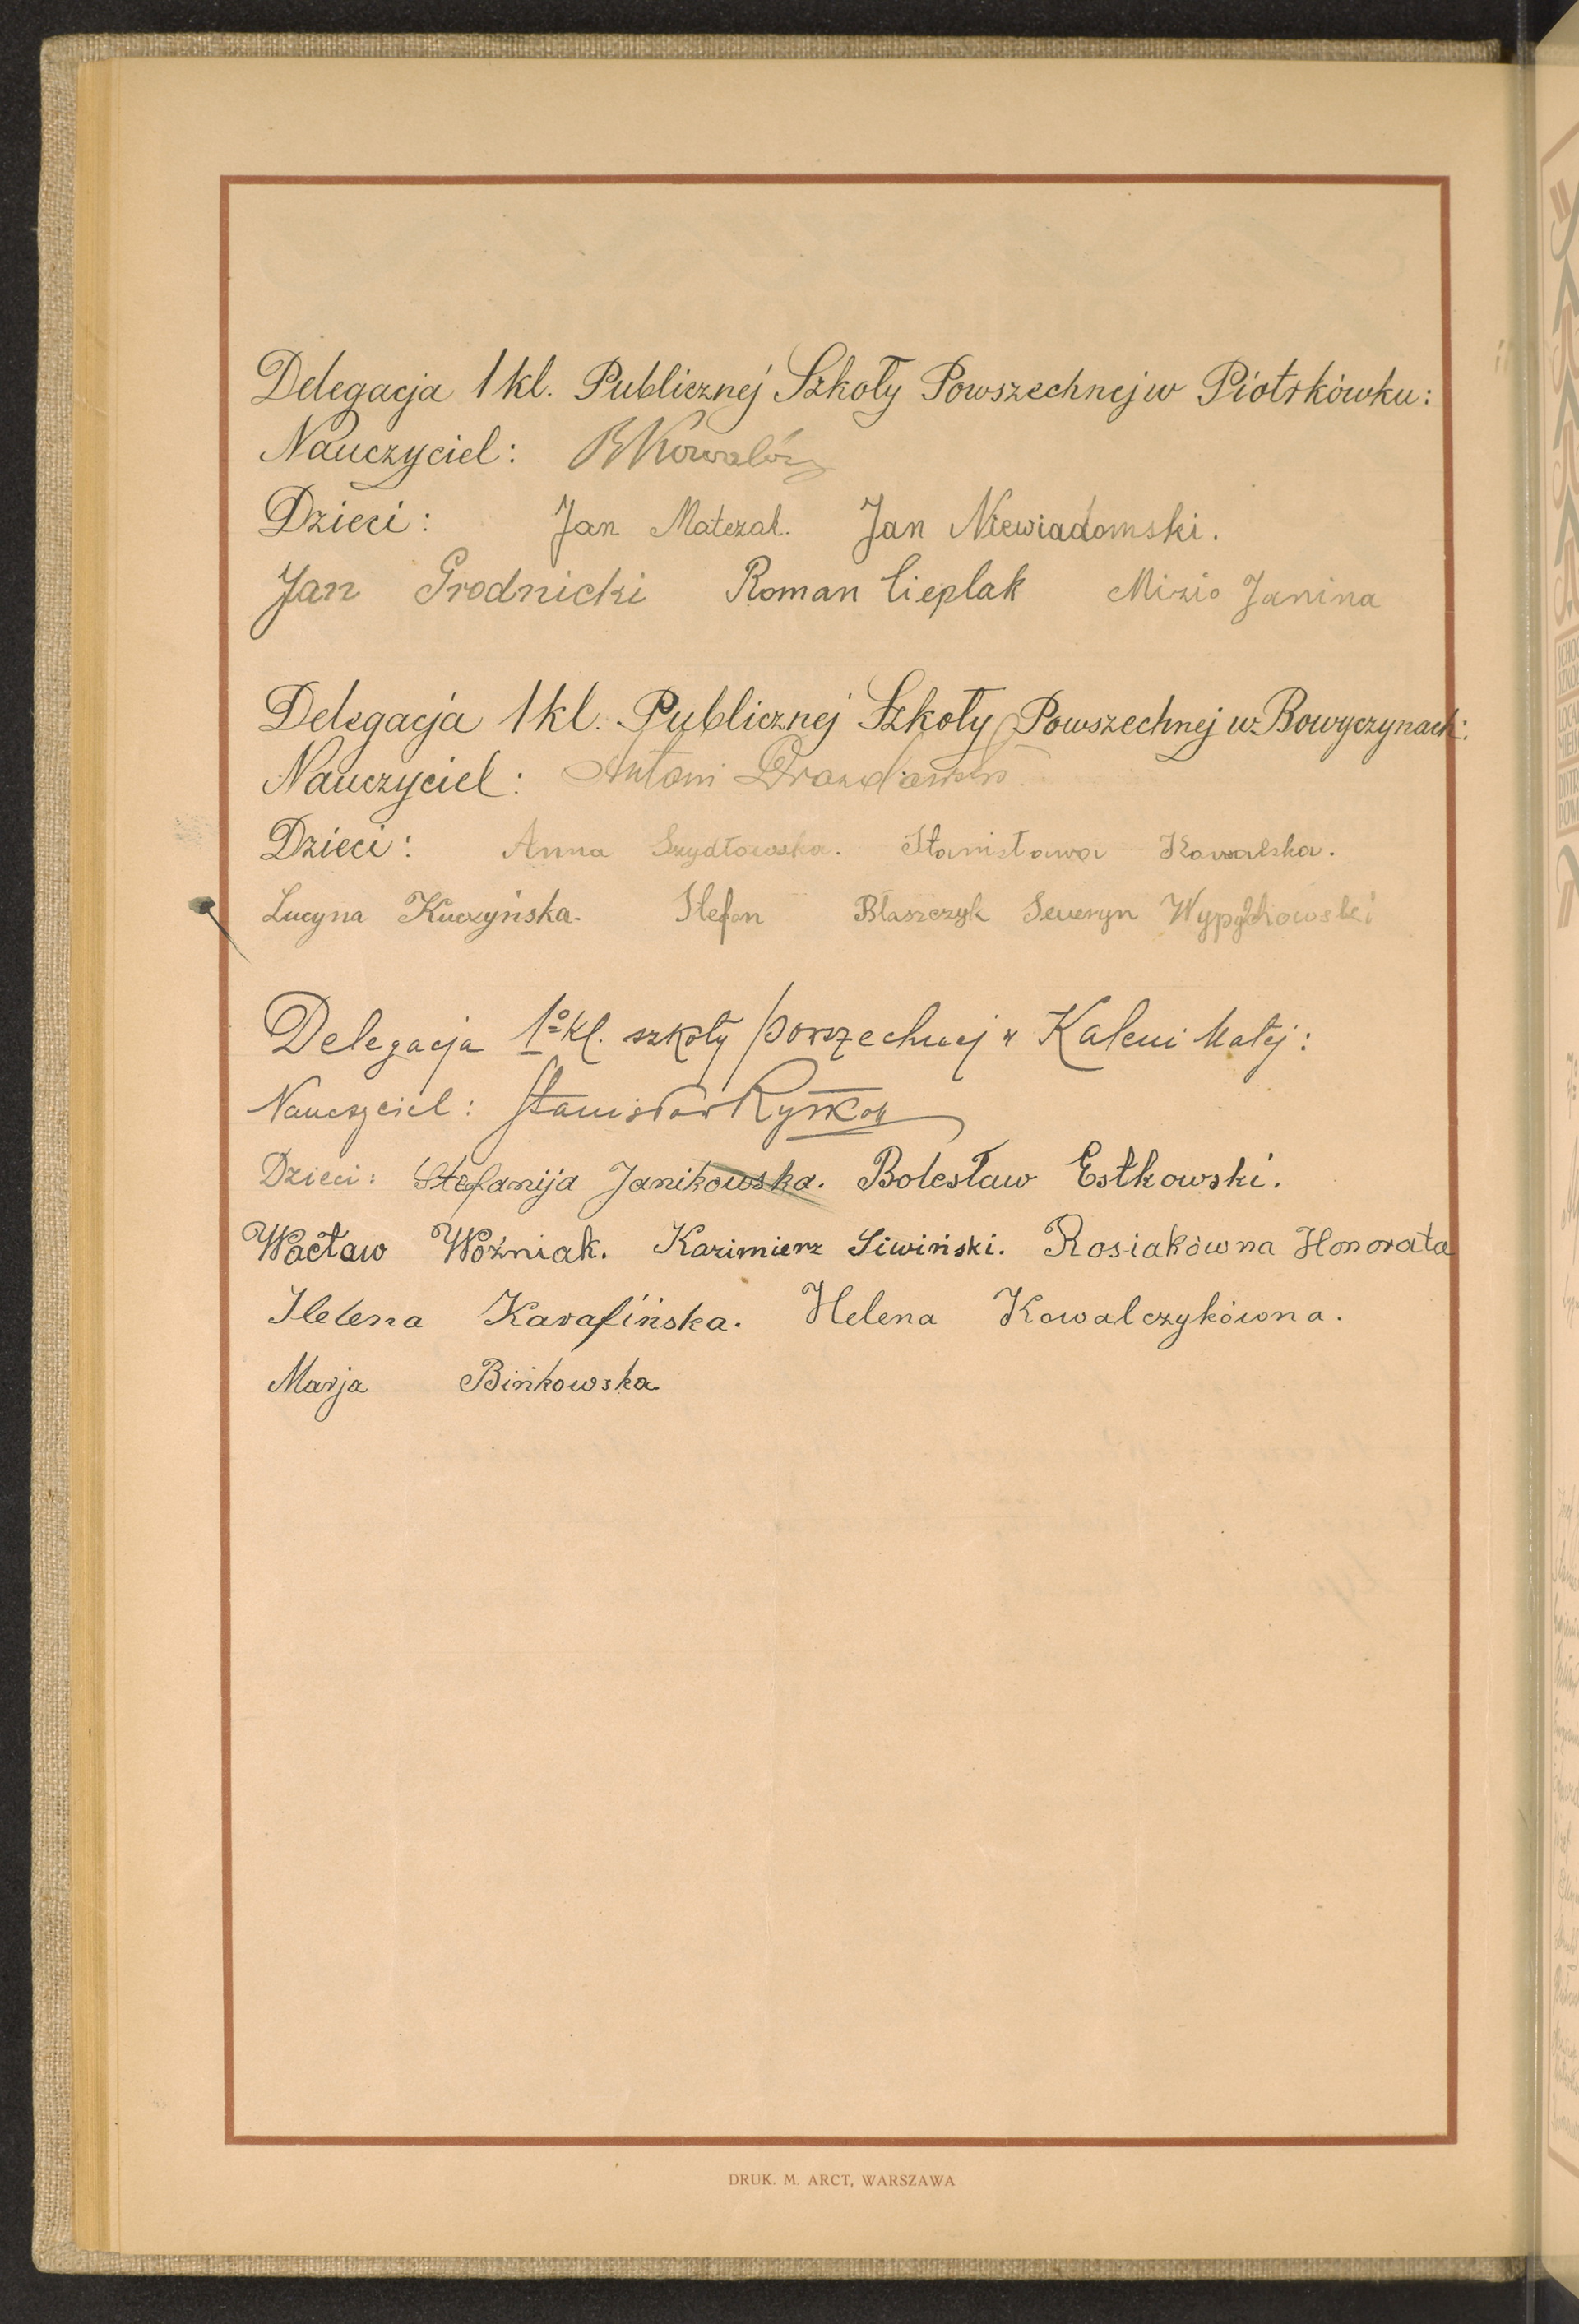 Delegacja 1 kl. Publicznej Szkoły Powszechnej w Piotrkówku:
Nauczyciel: B Kowalów
Dzieci: Jan Matczak. Jan Niewiadomski.
Jan Grodnicki Roman Cieplak Mizio Janina
Delegacja 1 kl. Publicznej Szkoły Powszechnej w Rowyczynach:
Nauczyciel: Antoni
Dzieci: Anna Szydłowska. Stanisława Kowalska.
Lucyna Kuczyńska. Stefan Błaszczyk Seweryn Wypychowski
Delegacja 1º kl. szkoły powszechnej w Kaleni Małej:
Nauczyciel: Stanisław
Dzieci: Stefanija Janikowska. Bolesław Estkowski.
Wacław Woźniak. Kazimierz Siwiński. Rosiakówna Honorata
Helena Karafińska. Helena Kowalczykówna.
Marja Bińkowska
DRUK. M. ARCT, WARSZAWA